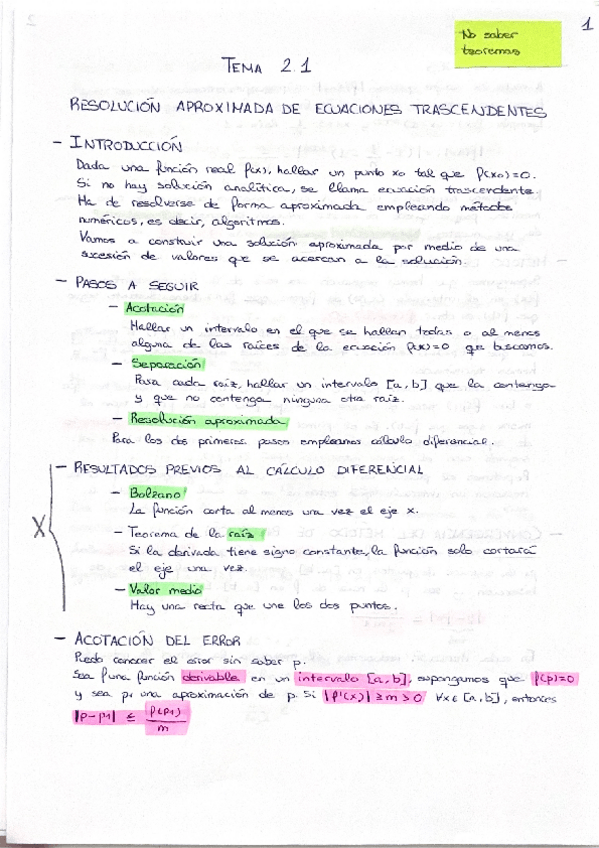 1
No saber
teoremas
TEMA 2.1
RESOLUCIÓN APROXIMADA DE ECUACIONES TRASCENDENTES
- INTRODUCCIÓN
Dada una función real f(x), hallar un punto x0 tal que f(x0)=0.
Si no hay solución analítica, se llama ecuación trascendente.
Ha de resolverse de forma aproximada empleando métodos
numéricos, es decir, algoritmos.
Vamos a construir una solución aproximada por medio de una
sucesión de valores que se acercan a la solución.
- PASOS A SEGUIR
- Acotación
Hallar un intervalo en el que se hallan todas o al menos
alguna de las raíces de la ecuación f(x)=0 que buscamos.
- Separación
Para cada raíz, hallar un intervalo [a,b] que la contenga
y que no contenga ninguna otra raíz.
- Resolución aproximada
Para los dos primeros pasos empleamos cálculo diferencial.
- RESULTADOS PREVIOS AL CÁLCULO DIFERENCIAL
- Bolzano
La función corta al menos una vez el eje x.
X
- Teorema de la raíz
Si la derivada tiene signo constante, la función solo cortará
el eje una vez.
- Valor medio
Hay una recta que une los dos puntos.
- ACOTACIÓN DEL ERROR
Puedo conocer el error sin saber p.
Sea f una función derivable en un intervalo [a,b], supongamos que f(p)=0
y sea p1 una aproximación de p. Si |f'(x)| ≥ m > 0 ∀x ∈ [a,b], entonces
|p-p1| ≤ f(p1)/m